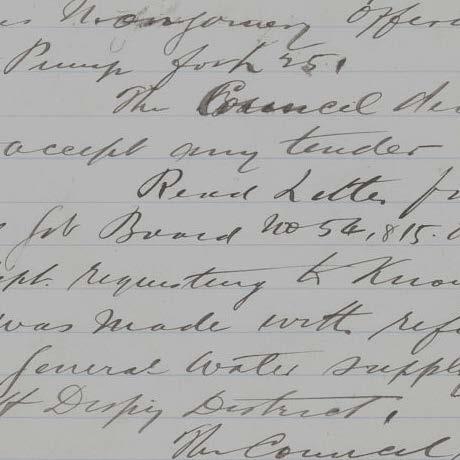 Montgomery Offer
Pump for £ 25.
The Council de
accept any tender
Read Letter fr
Board No 54,815.
requesting to know
was made with refe
General Water supply
District,
The Council